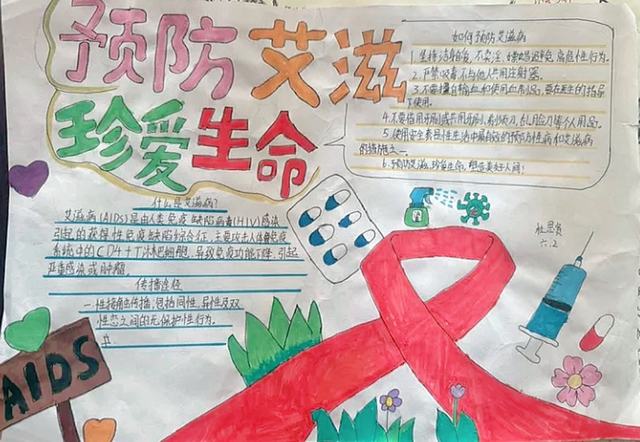 预防艾滋
珍爱生命
如何预防艾滋病
1.坚持洁身自爱,不卖淫、嫖娼避免高危性行为.
2.严禁吸毒不与他人共用注射器.
3.不要擅自输血和使用血制品,要在医生的指导
下使用.
4.不要借用或共用牙刷、剃须刀、刮脸刀等个人用品.
5.使用安全套是性生活中最有效的预防性病和艾滋病
的措施之一.
6.预防艾滋,珍爱生命,
什么是艾滋病?
艾滋病(AIDS)是由人类免疫缺陷病毒(HIV)感染
引起的获得性免疫缺陷综合征,主要攻击人体免疫
系统中的CD4+T淋巴细胞,导致免疫功能下降,引起
严重感染或肿瘤.
传播途径
一.性接触传播,包括同性、异性及双
性恋之间的无保护性行为.
六.2
AIDS